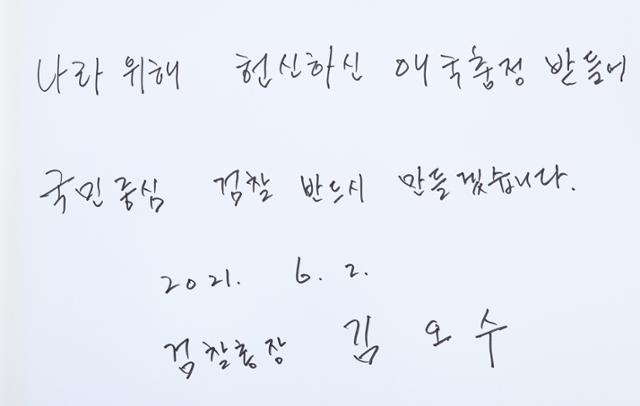 나라 위해 헌신하신 애국충정 받들어
국민중심 검찰 반드시 만들겠습니다.
2021. 6. 2.
검찰총장 김오수